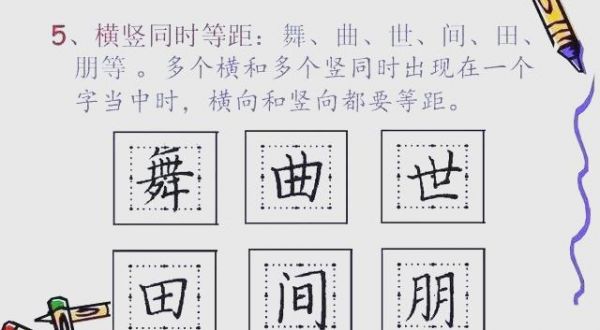 5、横竖同时等距：舞、曲、世、间、田、
朋等 。多个横和多个竖同时出现在一个
字当中时，横向和竖向都要等距。
舞 曲 世
田 间 朋